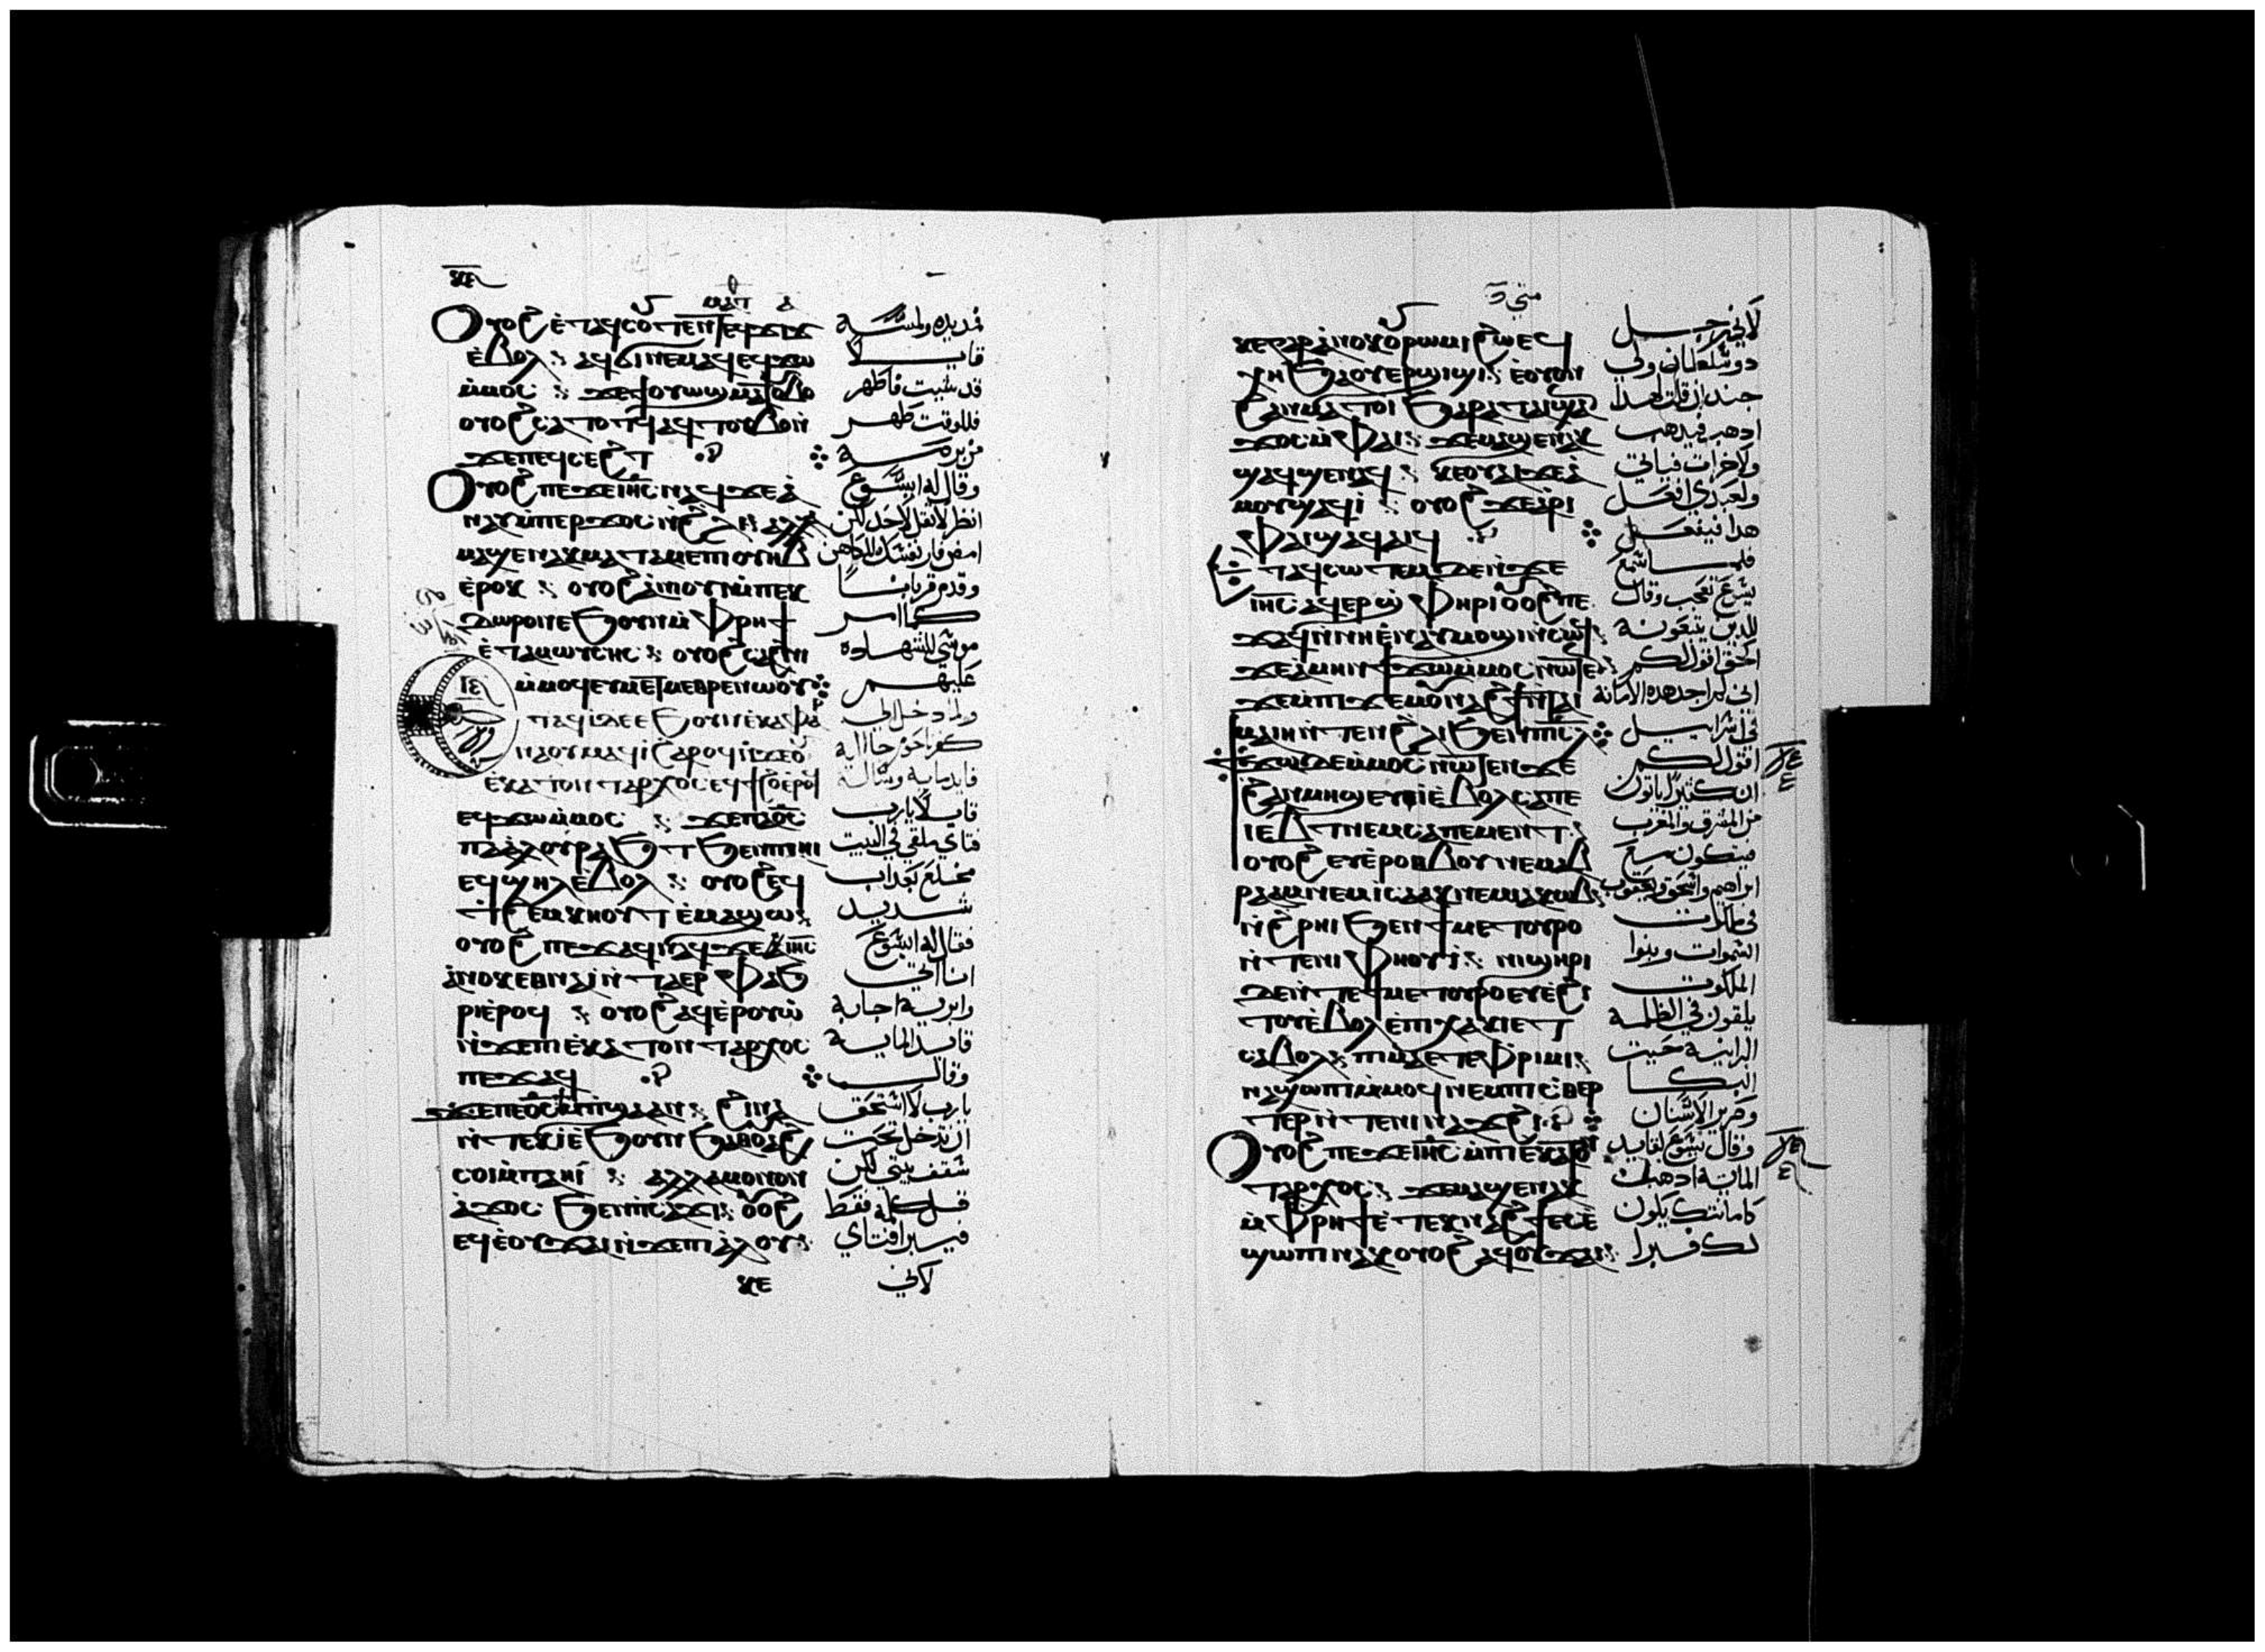 Ⲟⲩⲟϩ ⲉⲧⲁϥⲥⲟⲩⲧⲉⲛ ⲧⲉϥϫⲓϫ
ⲉ̀ⲃⲟⲗ ⲁϥϭⲓ ⲛⲉⲙⲁϥ ⲉϥϫⲱ
ⲙ̀ⲙⲟⲥ ϫⲉ ϯⲟⲩⲱϣ ⲙⲁⲧⲟⲩⲃⲟ
ⲟⲩⲟϩ ⲥⲁⲧⲟⲧϥ ⲁϥⲧⲟⲩⲃⲟ ⲛ̀
ϫⲉ ⲡⲉϥⲥⲉϩⲧ
Ⲟⲩⲟϩ ⲡⲉϫⲉ ⲓⲏⲥ ⲛⲁϥ ϫⲉ ⲁ̀
ⲛⲁⲩ ⲙ̀ⲡⲉⲣϫⲟⲥ ⲛ̀ϩⲗⲓ ⲁⲗⲗⲁ
ⲙⲁϣⲉⲛⲁⲕ ⲙⲁⲧⲁⲙⲉ ⲡⲓⲟⲩⲏⲃ
ⲉ̀ⲣⲟⲕ ⲟⲩⲟϩ ⲁ̀ⲛⲓⲟⲩⲓ ⲙ̀ⲡⲉⲕ
ⲇⲱⲣⲟⲛ ⲉϧⲟⲩⲛ ⲙ̀ⲫⲣⲏϯ
ⲉ̀ⲧⲁ ⲙⲱⲩⲥⲏⲥ ⲟⲩⲁϩⲥⲁϩⲛⲓ
ⲙ̀ⲙⲟϥ ⲉⲩⲙⲉⲧⲙⲉⲑⲣⲉ ⲛⲱⲟⲩ
ⲧⲁϥⲓ ⲇⲉ ⲉϧⲟⲩⲛ ⲉ̀ⲕⲁⲫⲁⲣ
ⲛⲁⲟⲩⲙ ⲁϥⲓ̀ ϩⲁⲣⲟϥ ⲛ̀ϫⲉ ⲟⲩ
ⲉⲕⲁⲧⲟⲛⲧⲁⲣⲭⲟⲥ ⲉϥϯϩⲟ ⲉ̀ⲣⲟϥ
ⲉϥϫⲱ ⲙ̀ⲙⲟⲥ ϫⲉ ⲡⲁϭⲥ
ⲡⲁⲁ̀ⲗⲟⲩ ⲣⲁϧⲧ ϧⲉⲛ ⲡⲁⲏⲓ
ⲉϥϣⲏⲗ ⲉ̀ⲃⲟⲗ ⲟⲩⲟϩ ⲉϥ
ⲧϩⲉⲙⲕⲏⲟⲩⲧ ⲉ̀ⲙⲁϣⲱ
ⲟⲩⲟϩ ⲡⲉϫⲁϥ ⲛⲁϥ ⲛ̀ϫⲉ ⲓⲏⲥ
ⲁ̀ⲛⲟⲕ ⲉⲑⲛⲁⲓ̀ ⲛ̀ⲧⲁⲉⲣⲫⲁϧ
ⲣⲓ ⲉ̀ⲣⲟϥ ⲟⲩⲟϩ ⲁϥⲉ̀ⲣⲟⲩⲱ̀
ⲛ̀ϫⲉ ⲡⲓⲉ̀ⲕⲁⲧⲟⲛⲧⲁⲣⲭⲟⲥ
ⲡⲉϫⲁϥ
ϫⲉ ⲡⲁϭⲥ ⲛ̀ϯⲙⲡϣⲁ ⲁⲛ ϩⲓⲛⲁ
ⲛ̀ⲧⲉⲕⲓ̀ ⲉ̀ϧⲟⲩⲛ ϧⲁ ⲑⲟⲩⲁϩ
ⲥⲟⲓ ⲙ̀ⲡⲁⲏⲓ ⲁⲗⲗⲁ ⲙⲟⲛⲟⲛ
ⲁ̀ϫⲟⲥ ϧⲉⲛ ⲡⲥⲁϫⲓ ⲟⲩⲟϩ
ⲉϥⲉ̀ⲟⲩϫⲁⲓ ⲛ̀ϫⲉ ⲡⲁⲁ̀ⲗⲟⲩ
ⲕⲉ
فمد يده ولمسه
قايلا
قد شيت فاطهر
فللوقت طهر
من برصه
وقال له ايسوع
انظر لا تقل لاحد لكن
امض فار نفسك للكاهن
وقدم قربانا
كما امر
موسى للشهاده
عليهم
ولما دخل الى
كفرناحوم جا اليه
قايد مايه وساله
قايلا يارب
فتاي ملقى في البيت
مخلع بعذاب
شديد
فقال له ايسوع
انا اتي
وابريه اجابه
قايد المايه
وقال
يارب لا استحق
ان تدخل تحت
سقف بيتي لكن
قل كلمه فقط
فيبرا فتاي
لاني
ⲕⲉ ⲅⲁⲣ ⲁ̀ⲛⲟⲕ ⲟⲩⲣⲱⲙⲓ ϩⲱ ⲉϥ
ⲭⲏ ϧⲁ ⲟⲩⲉⲣϣⲓϣⲓ ⲉ̀ⲟⲩⲟⲛ
ϩⲁⲛⲙⲁⲧⲟⲓ ϧⲁⲣⲁⲧ ⲁⲓϣⲁⲛ
ϫⲟⲥ ⲙ̀ⲫⲁⲓ ϫⲉ ⲙⲁϣⲉⲛⲁⲕ
ϣⲁϥϣⲉⲛⲁϥ ⲕⲉⲟⲩⲁⲓ ϫⲉ ⲁ̀
ⲙⲟⲩ ϣⲁϥⲓ̀ ⲟⲩⲟϩ ϫⲉ ⲁ̀ⲣⲓ
ⲫⲁⲓ ϣⲁϥⲁⲓϥ
ⲧⲁϥⲥⲱⲧⲉⲙ ⲇⲉ ⲛ̀ϫⲉ
ⲓⲏⲥ ⲁϥⲉⲣϣⲫⲏⲣⲓ ⲟⲩⲟϩ ⲡⲉ
ϫⲁϥ ⲛ̀ⲛⲏ ⲉ̀ⲛⲁⲩⲙⲟϣⲓ ⲛ̀ⲥⲱϥ
ϫⲉ ⲁ̀ⲙⲏⲛ ϯϫⲱ ⲙ̀ⲙⲟⲥ ⲛⲱⲧⲉⲛ
ϫⲉ ⲙ̀ⲡⲓϫⲉⲙ ⲟⲩⲛⲁϩϯ ⲛ̀ⲧⲁⲓ
ⲙⲁⲓⲏ ⲛ̀ⲧⲉⲛ ϩⲗⲓ ϧⲉⲛ ⲡⲓⲥⲗ
ϯϫⲱ ⲇⲉ ⲙ̀ⲙⲟⲥ ⲛⲱⲧⲉⲛ ϫⲉ
ϩⲁⲛⲙⲏϣ ⲉⲩⲉ̀ⲓ̀ ⲉ̀ⲃⲟⲗ ⲥⲁ ⲡⲉ
ⲓⲉⲃⲧ ⲛⲉⲙ ⲥⲁ ⲡⲉⲙⲉⲛⲧ
ⲟⲩⲟϩ ⲉⲩⲉ̀ⲣⲟⲑⲃⲟⲩ ⲛⲉⲙ ⲁⲃ
ⲣⲁⲁⲙ ⲛⲉⲙ ⲓⲥⲁⲁⲕ ⲛⲉⲙ ⲓⲁⲕⲱⲃ
ⲛ̀ϩⲣⲏⲓ ϧⲉⲛ ϯⲙⲉⲧⲟⲩⲣⲟ
ⲛ̀ⲧⲉ ⲛⲓⲫⲏⲟⲩⲓ̀ ⲛⲓϣⲏⲣⲓ
ⲇⲉ ⲛ̀ⲧⲉ ϯⲙⲉⲧⲟⲩⲣⲟ ⲉⲩⲉ̀ϩⲓ
ⲧⲟⲩ ⲉ̀ⲃⲟⲗ ⲉ̀ⲡⲓⲭⲁⲕⲓ ⲉⲧ
ⲥⲁⲃⲟⲗ ⲡⲓⲙⲁ ⲉⲧⲉ ⲫⲣⲓⲙⲓ
ⲛⲁϣⲱⲡⲓ ⲙ̀ⲙⲟϥ ⲛⲉⲙ ⲡⲓⲥⲑⲉⲣ
ⲧⲉⲣ ⲛ̀ⲧⲉ ⲛⲓⲛⲁϫϩⲓ
Ⲟⲩⲟϩ ⲡⲉϫⲉ ⲓⲏⲥ ⲙ̀ⲡⲓⲉⲕⲁⲧⲟⲛ
ⲧⲁⲣⲭⲟⲥ ϫⲉ ⲙⲁϣⲉⲛⲁⲕ
ⲙ̀ⲫⲣⲏϯ ⲉ̀ⲧⲉⲕⲛⲁϩϯ ⲉⲥⲉ̀
ϣⲱⲡⲓ ⲛⲁⲕ ⲟⲩⲟϩ ⲁϥⲟⲩϫⲁⲓ
لاني رجل
ذو سلطان ولي
جند ان قلت لهذا
اذهب فيذهب
ولاخر ات فياتي
ولعبدي افعل
هذا فيفعل
فلما سمع
يسوع تعجب وقال
للذين يتبعونه
الحق اقول لكم
اني لم اجد هذه الامانه
في اسراييل
اقول لكم
ان كثيرا ياتون
من المشرق والمغرب
فيتكون مع
ابراهيم واسحق ويعقوب
في ملكوت
السموات وبنوا
الملكوت
يلقون في الظلمه
البرانيه حيث
البكا
وصرير الاسنان
وقال يسوع لقايد
المايه اذهب
كامانتك يكون
لك فبرا